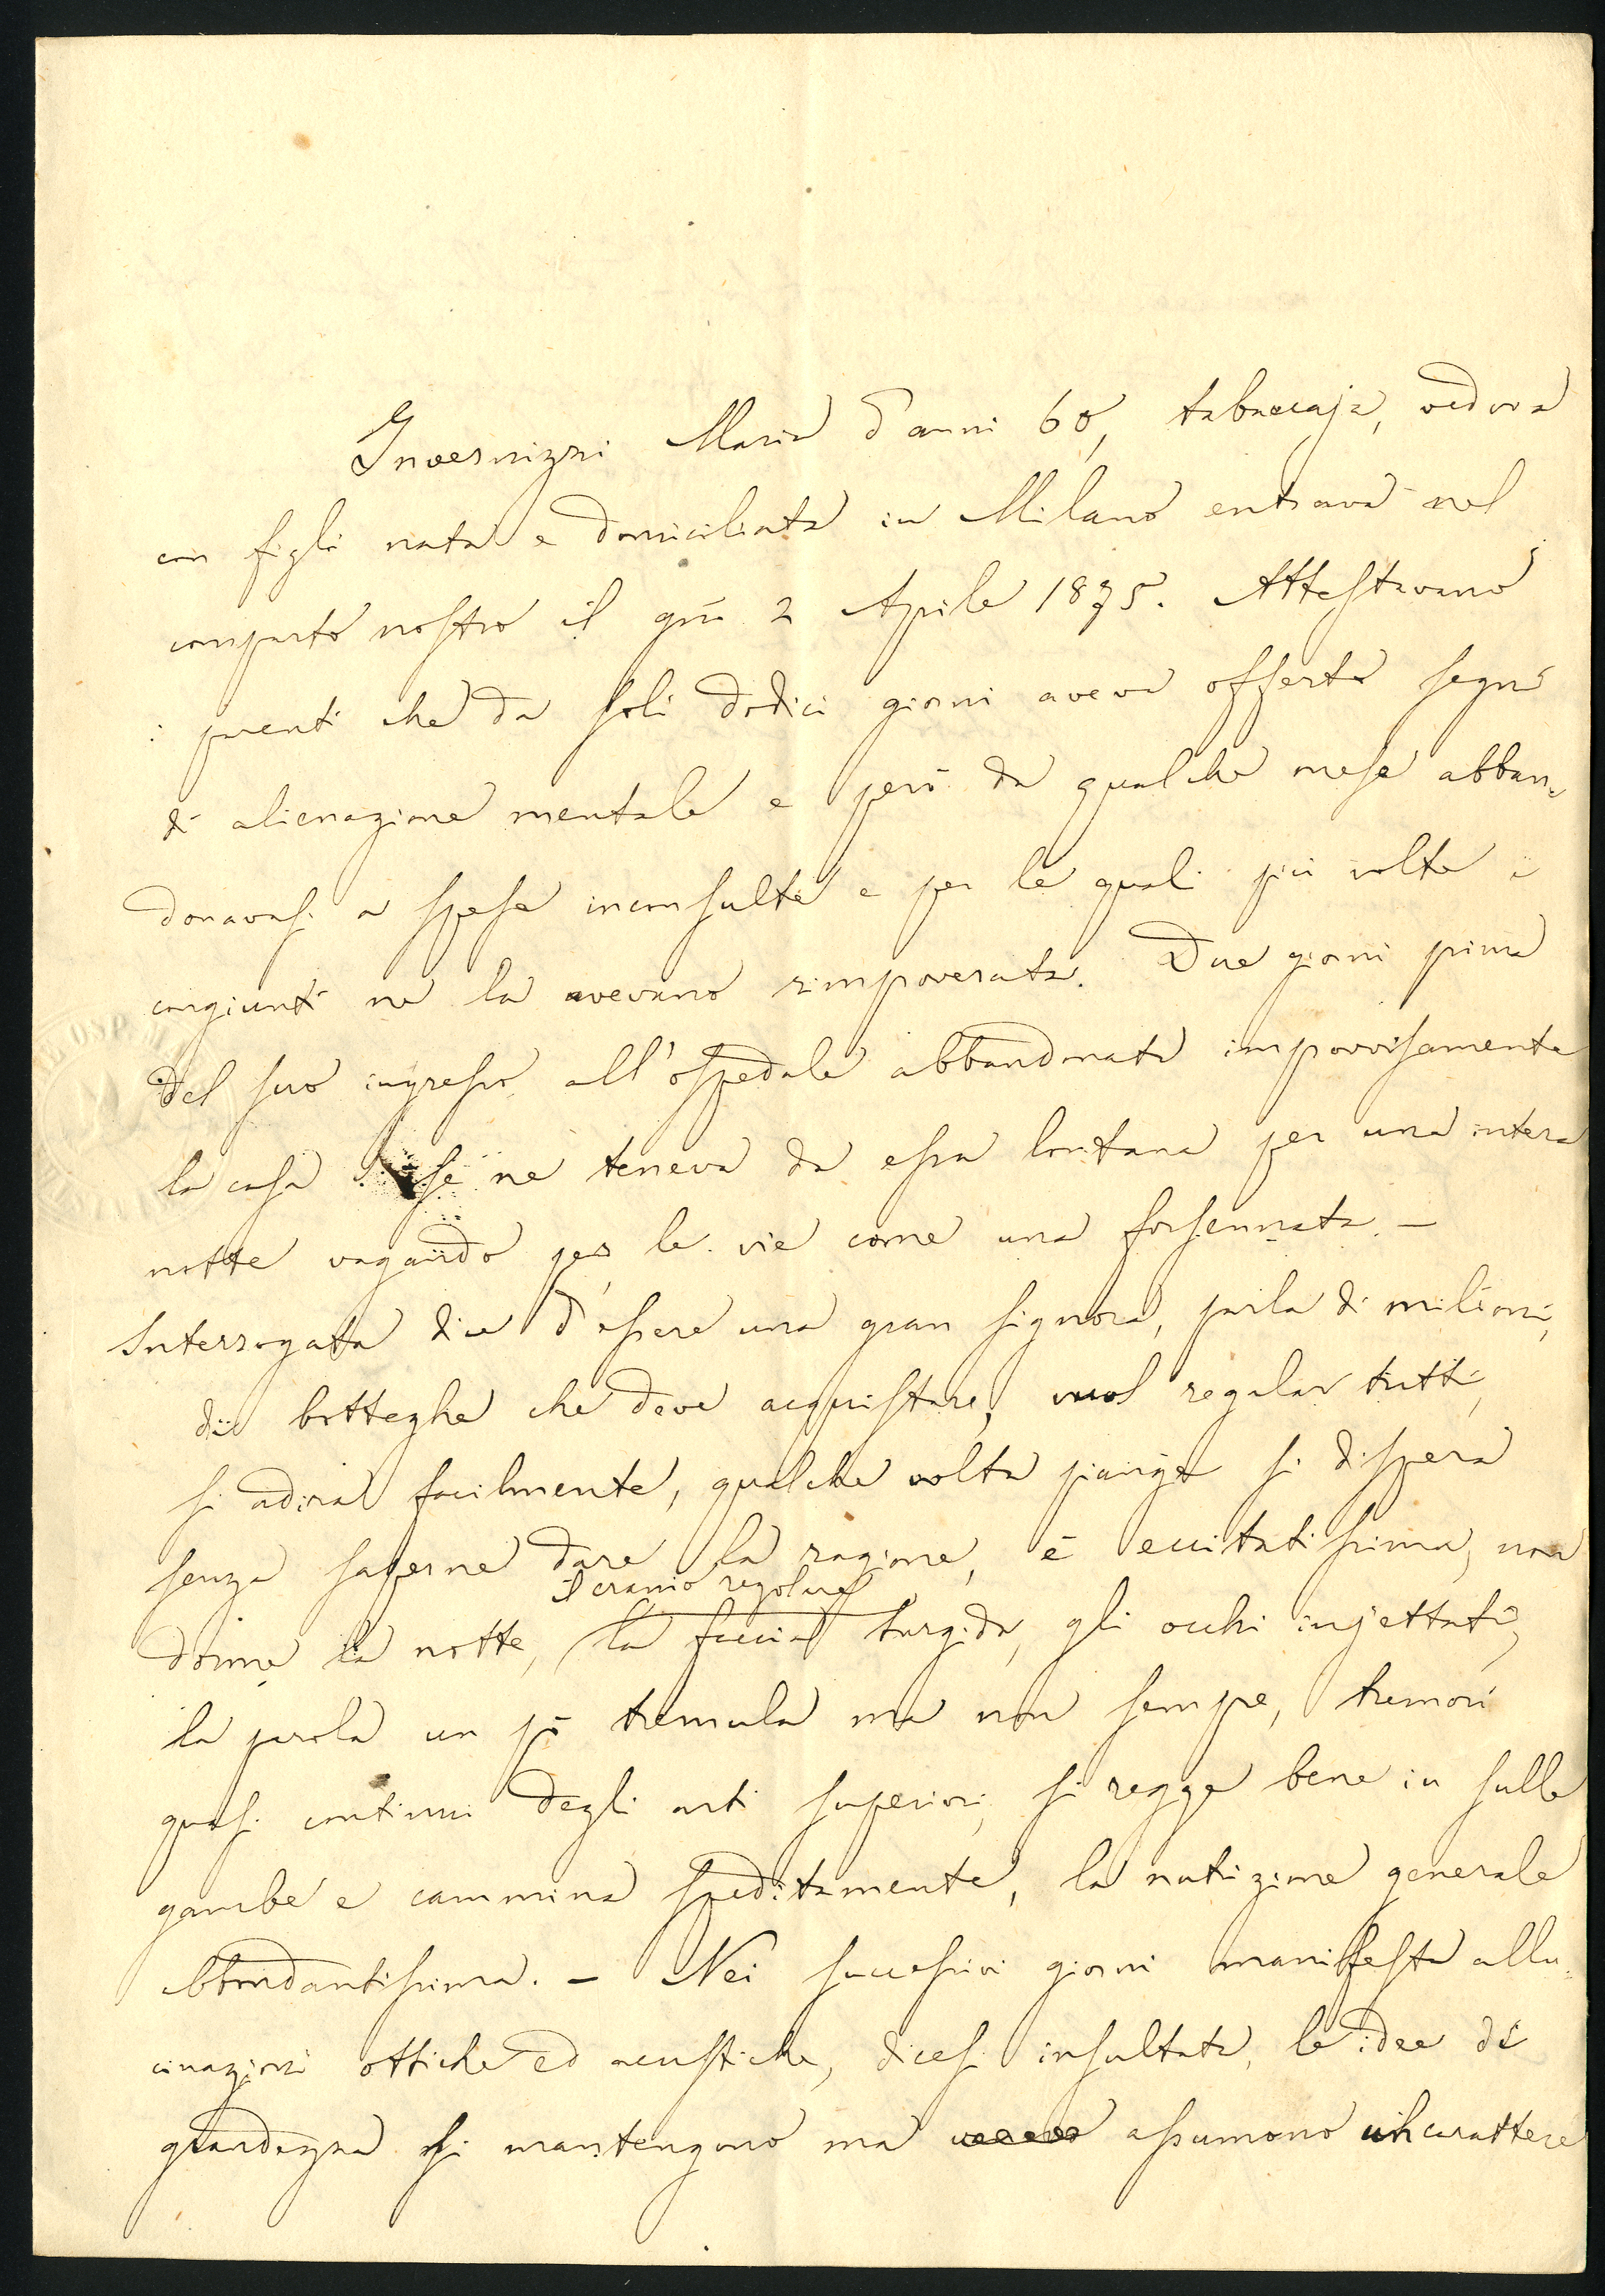 Invernizzi Maria d'anni 60, tabaccaja, vedova
con figli nata e domiciliata in Milano entrava nel
comparto nostro il gno 2 Aprile 1875. Attestavano
i parenti che da soli dodici giorni aveva offerto segni
di alienazione mentale e però da qualche mese abban-
donavasi a spese inconsulte e per le quali più volte i
congiunti ne la avevano rimpoverata. Due giorni prima
del suo ingresso all'ospedale abbandonata improvvisamente
la casa se ne teneva da essa lontana per una intera
notte vagando per le vie come una forsennata. —
Interrogata dice d'essere una gran signora, parla di milioni,
di botteghe che deve acquistare, vuol regalar tutti,
si adira facilmente, qualche volta piange si dispera
senza saperne dare la ragione, è eccitatissima, non
il cranio regolare
dorme la notte, la faccia turgida, gli occhi injettati,
la parola un pò tremula ma non sempre, tremori
quasi continui degli arti superiori, si regge bene in sulle
gambe e cammina speditamente, la nutrizione generale
abbondantissima. — Nei successivi giorni manifesta allu-
cinazioni ottiche ed acustiche, dicesi insultata, le idee di
grandezza si mantengono ma assumono un carattere